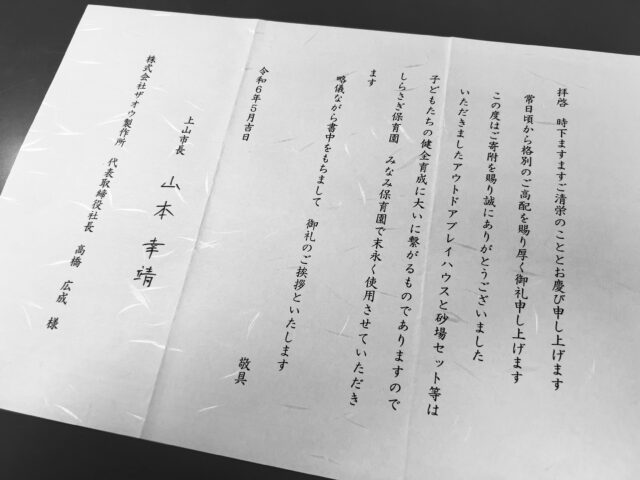 拝啓　時下ますますご清栄のこととお慶び申し上げます
常日頃から格別のご高配を賜り厚く御礼申し上げます
この度はご寄附を賜り誠にありがとうございました
いただきましたアウトドアプレイハウスと砂場セット等は
子どもたちの健全育成に大いに繋がるものでありますので
しらさぎ保育園　みなみ保育園で末永く使用させていただき
ます
略儀ながら書中をもちまして　御礼のご挨拶といたします
敬具
令和6年5月吉日
上山市長　山本幸靖
株式会社ザオウ製作所　代表取締役社長　高橋　広成　様